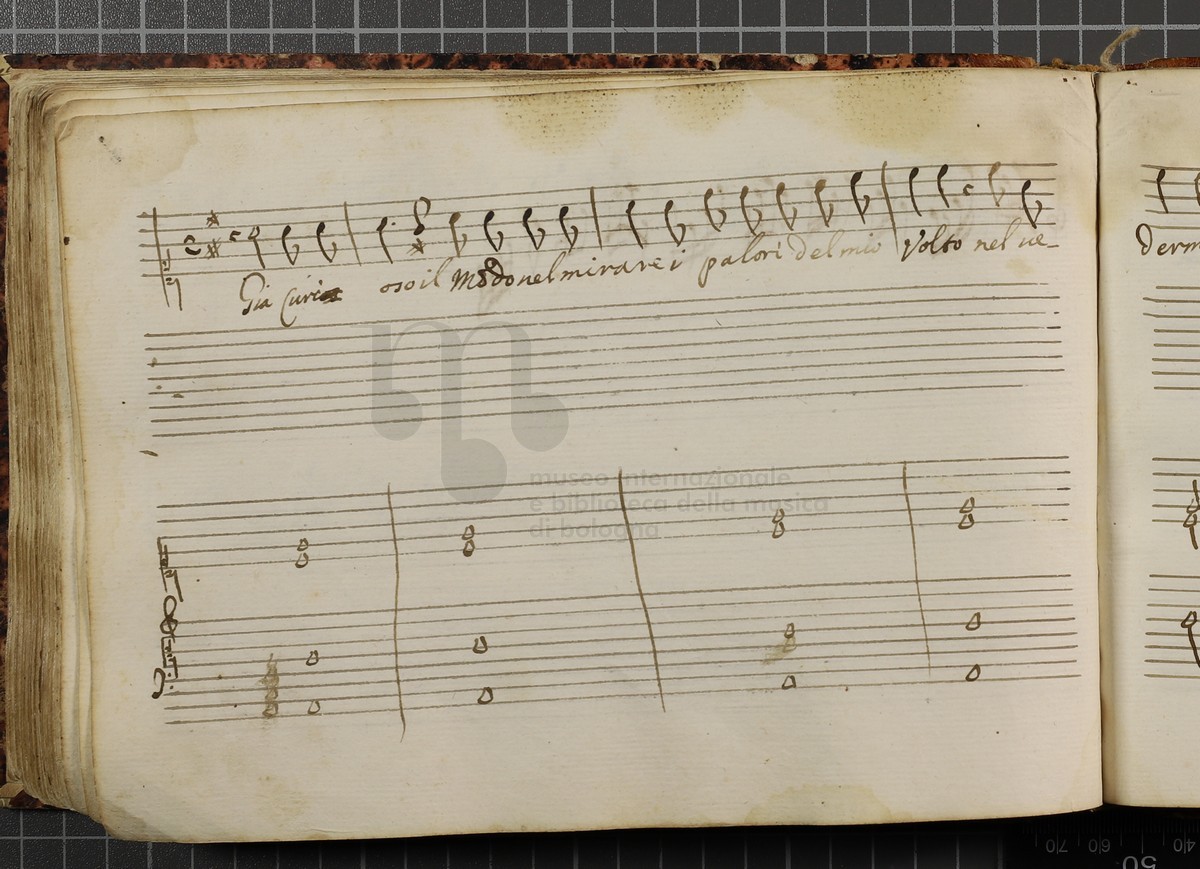 Gia Curio osoil Mondo nel mirare i palori del mio Volto nel ve-
derm
museo internazionale
e biblioteca della musica
di bologna
0|7 0|6 0|4
50